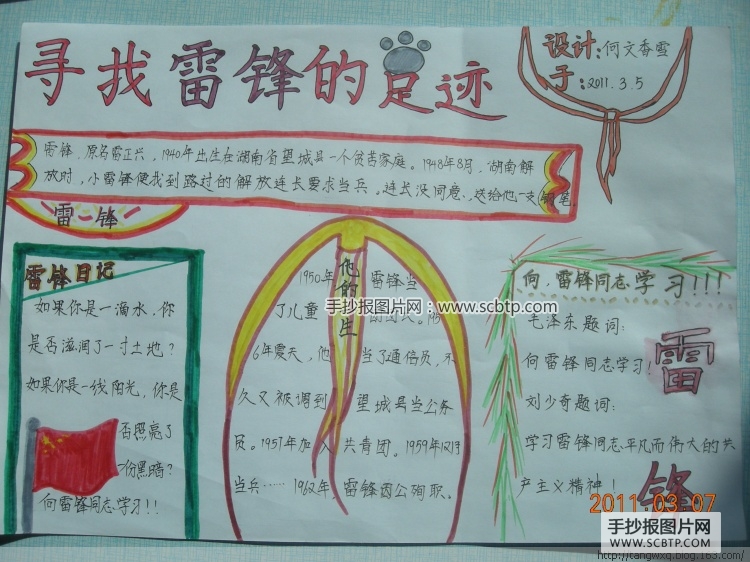 寻找雷锋的足迹
设计:何文香雪
于:2011.3.5
雷锋,原名雷正兴,1940年出生在湖南省望城县一个贫苦家庭。1948年8月,湖南解
放时,小雷锋便找到路过的解放连长要求当兵。连长没同意、送给他一支钢笔.
雷锋
雷锋日记
如果你是一滴水,你
是否滋润了一寸土地?
如果你是一线阳光,你是
否照亮了
份黑暗?
向雷锋同志学习!!
他的一生
1950年 雷锋当
了儿童团
6年夏天,他 当了通信员,不
久又被调到 望城县当公务
员。1957年加入 共青团。1959年12月
当兵…… 1962年,雷锋因公殉职。
向,雷锋同志学习!!!
毛泽东题词:
向雷锋同志学习!
刘少奇题词:
学习雷锋同志平凡而伟大的共
产主义精神!
雷
锋
手抄报图片网:www.scbtp.com
2011.03.07
手抄报图片网
SCBTP.COM
http://tangwxq.blog.163.com/